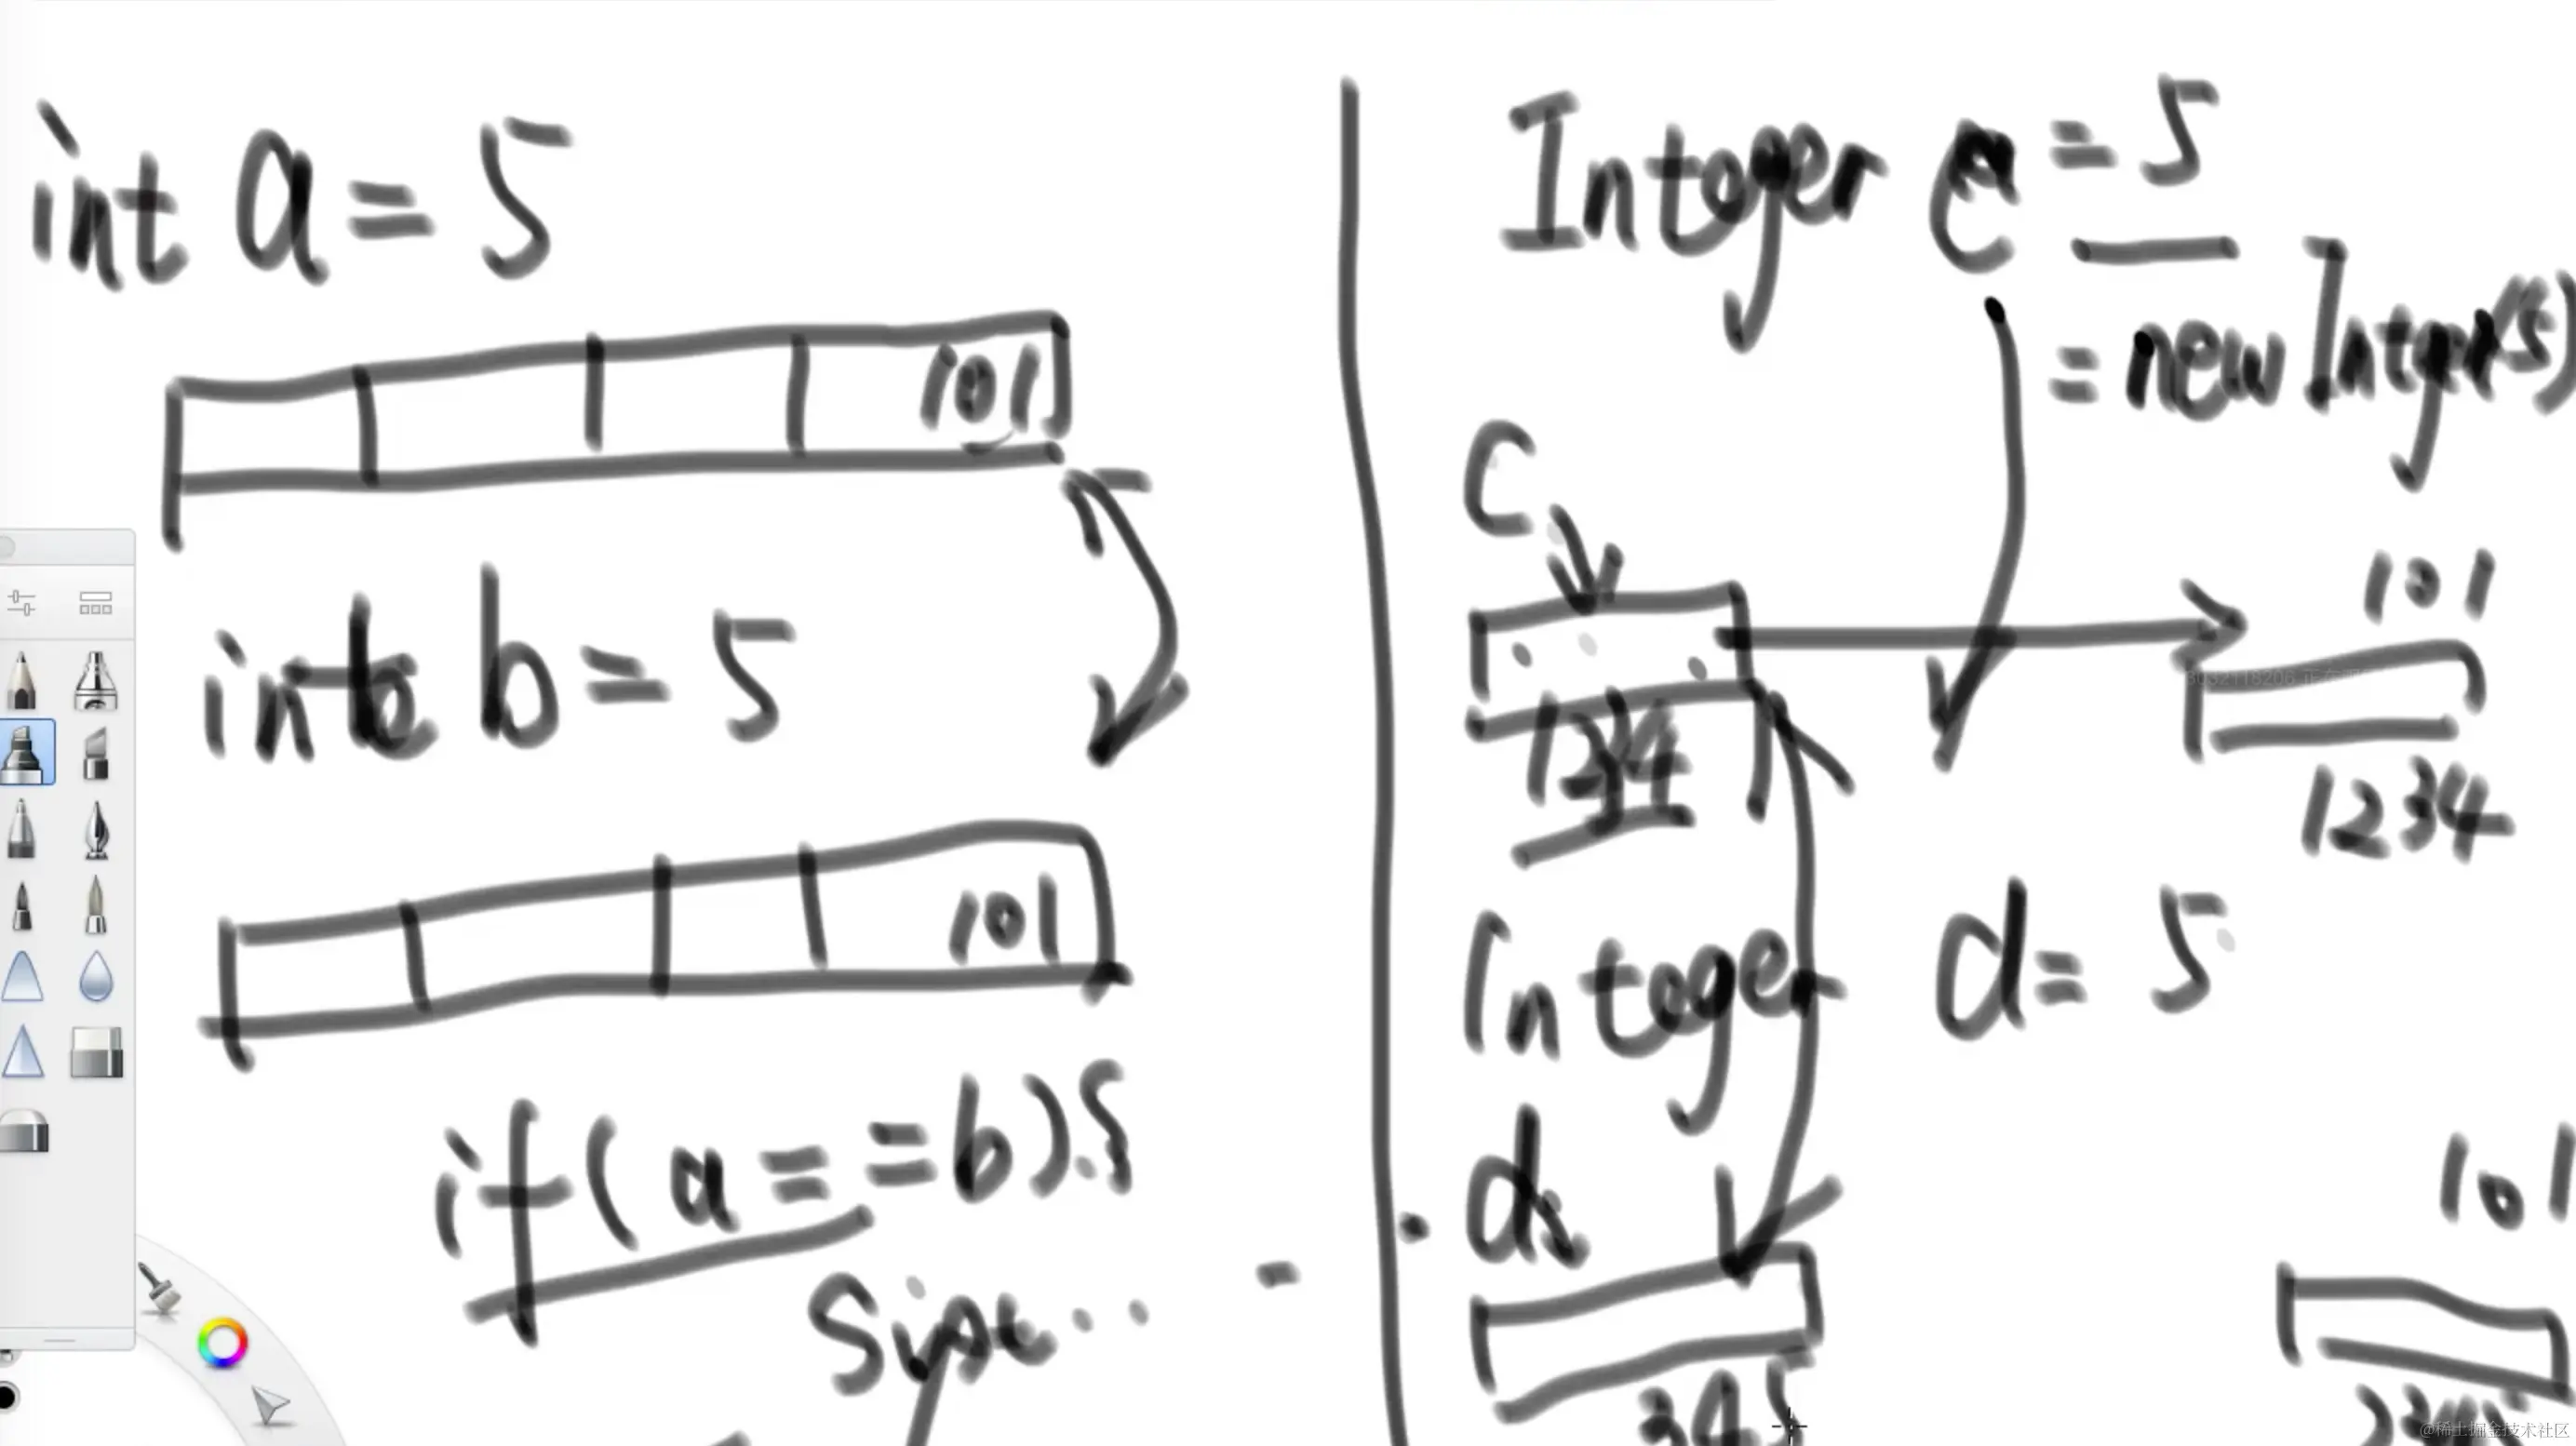 int a = 5
101
int b = 5
101
if(a==b){
Integer c = 5
= new Intger(5)
C
101
1234
1234
Integer d = 5
d
101
@稀土掘金技术社区